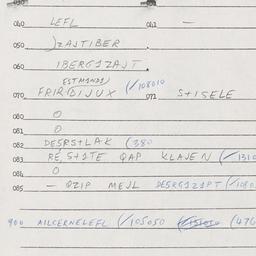 040 LEFL 041 —
050 ZAJTIBER
060 IBERG1ZAJT
ESTM1ND1
070 FRIRDIJUX (/108010 071 S+ISELE
080 0
081 0
082 DESRS+LAK (380
083 RE, S+1TE QAP KLAJEN (/1310
084 0
085 — QZIP MEJL DESRG1Z1PT (/1080
900 AILCERNELEFL (/105050 (476